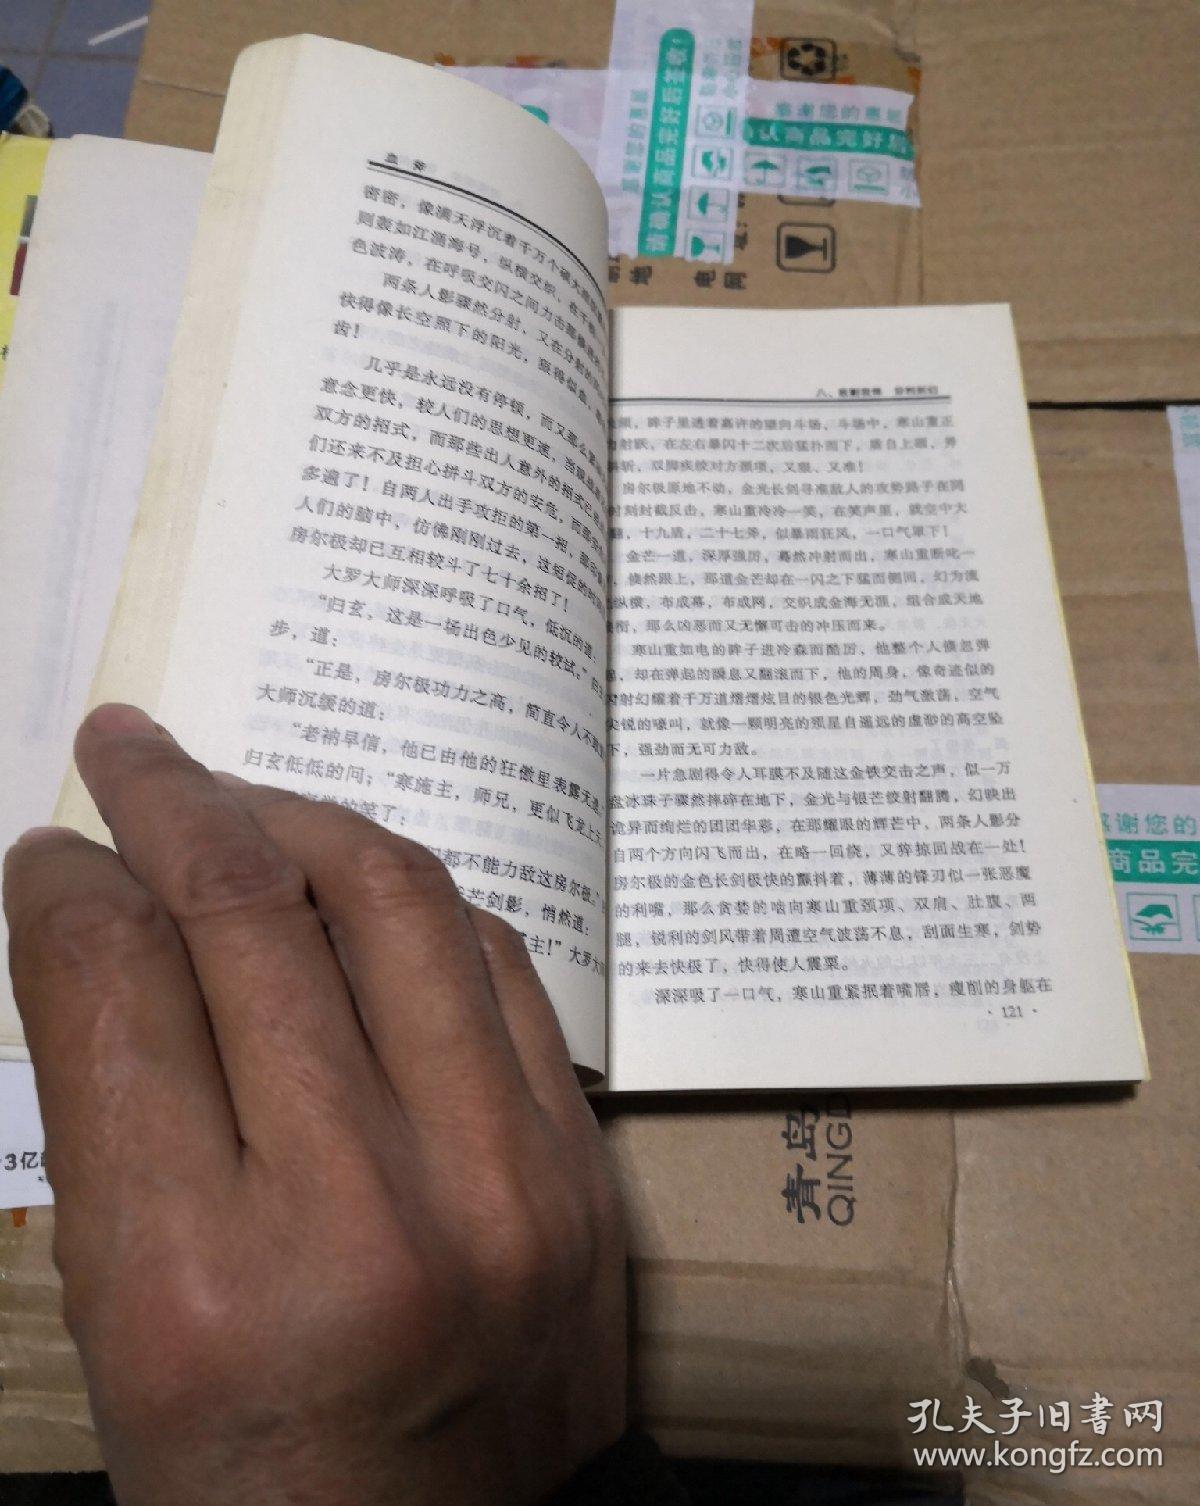 密密，像满天浮沉着千万个硕大
则轰如江涌海号，纵横交织，在
色波涛，在呼吸交闪之间力击
两条人影骤然分射，又在分射的
快得像长空照下的阳光，狠得似血，
齿！
几乎是永远没有停顿，而又那么
意念更快，较人们的思想更速，当
双方的招式，而那些出人意外的招式已
们还来不及担心拼斗双方的安危，而那
多遍了！自两人出手攻拒的第一招，
人们的脑中，仿佛刚刚过去，这短促的时
房尔极却已互相较斗了七十余招了！
大罗大师深深呼吸了口气，低沉的道：
“归玄，这是一场出色少见的较试。”归玄
步，道：
“正是，房尔极功力之高，简直令人不
大师沉缓的道：
“老衲早信，他已由他的狂傲里表露无遗
归玄低低的问；“寒施主，师兄，更似飞龙上
的笑了：
都不能力敌这房尔极。”
芒剑影，悄然道：
主！”大罗大
频，眸子里透着嘉许的望向斗场，斗场中，寒山重正
射跃，在左右暴闪十二次后猛扑而下，盾自上砸，斧
斩，双脚疾绞对方颈项，又狠、又准！
房尔极原地不动，金光长剑寻准敌人的攻势路子在同
时刻封截反击，寒山重冷冷一笑，在笑声里，就空中大
翻，十九盾，二十七斧，似暴雨狂风，一口气罩下！
金芒一道，深厚强厉，蓦然冲射而出，寒山重断叱一
，倏然跟上，那道金芒却在一闪之下猛而侧回，幻为流
纵横，布成幕，布成网，交织成金海无涯，组合成天地
衔，那么凶恶而又无懈可击的冲压而来。
寒山重如电的眸子进冷森而酷厉，他整个人倏忽弹
起，却在弹起的瞬息又翻滚而下，他的周身，像奇迹似的
闪射幻耀着千万道熠熠炫目的银色光辉，劲气激荡，空气
尖锐的嚎叫，就像一颗明亮的殒星自遥远的虚渺的高空坠
下，强劲而无可力敌。
一片急剧得令人耳膜不及随这金铁交击之声，似一万
盆冰珠子骤然摔碎在地下，金光与银芒绞射翻腾，幻映出
诡异而绚烂的团团华彩，在那耀眼的辉芒中，两条人影分
自两个方向闪飞而出，在略一回绕，又猝掠回战在一处！
房尔极的金色长剑极快的颤抖着，薄薄的锋刃似一张恶魔
的利嘴，那么贪婪的啃向寒山重颈项、双肩、肚腹、两
腿，锐利的剑风带着周遭空气波荡不息，刮面生寒，剑势
的来去快极了，快得使人震栗。
深深吸了一口气，寒山重紧抿着嘴唇，瘦削的身躯在
·121·
感谢您的惠顾
认商品完好后
请确认商品完好后签收！
电网
感谢您的
商品完
3亿
青岛
QINGD
孔夫子旧書网
www.kongfz.com